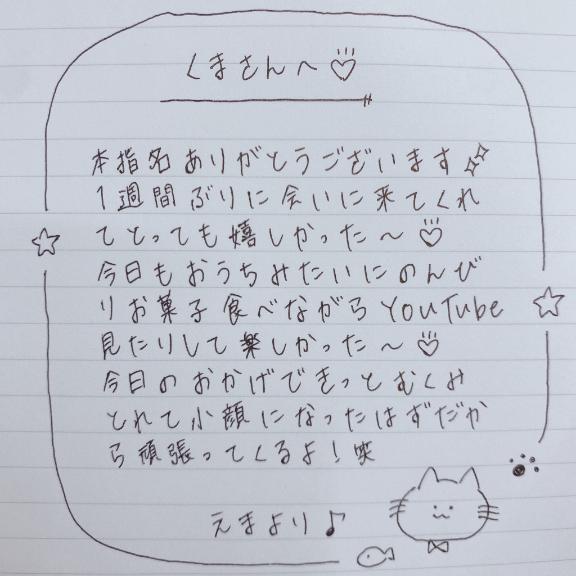 くまさんへ♡
本指名ありがとうございます
1週間ぶりに会いに来てくれ
てとっても嬉しかった〜♡
今日もおうちみたいにのんび
りお菓子食べながらYouTube
見たりして楽しかった〜♡
今日のおかげできっとむくみ
とれて小顔になったはずだか
ら頑張ってくるよ!笑
えまより♪